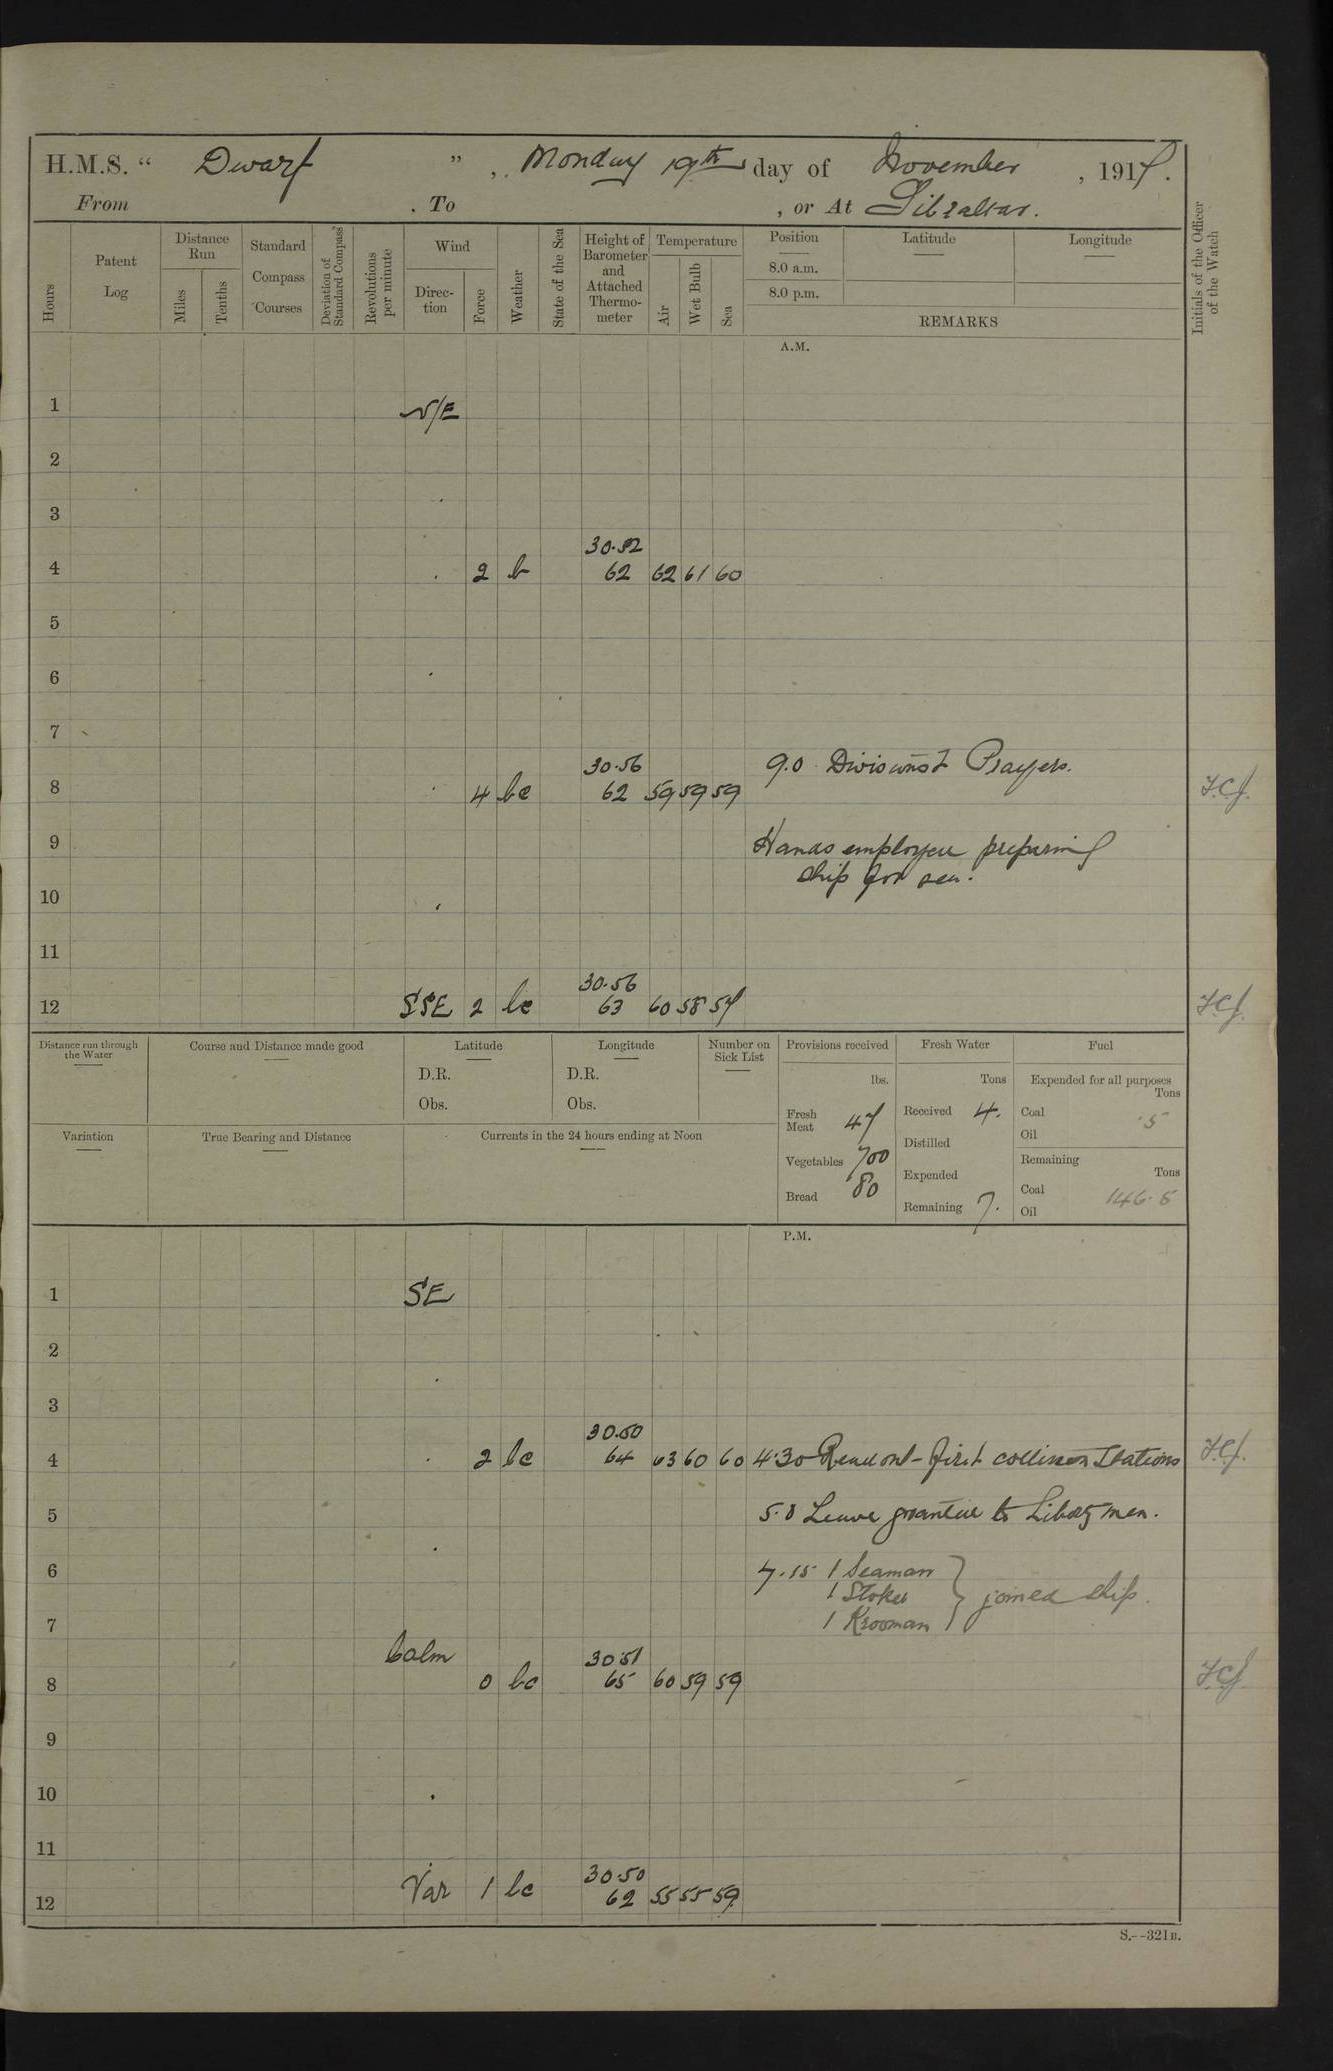 H.M.S. “ Dwarf ”, Monday 19th day of November, 1917.
From . To , or At Gibraltar.
Hours Patent Log Distance Run Miles Tenths Standard Compass Courses Deviation of Standard Compass Revolutions per minute Wind Direc-tion Force Weather State of the Sea Height of Barometer and Attached Thermo-meter Temperature Air Wet Bulb Sea Position 8.0 a.m. 8.0 p.m. Latitude Longitude REMARKS Initials of the Officer of the Watch
A.M.
1 N/E
2
3
30.52
4 2 b 62 62 61 60
5
6
7
30.56 9.0 Divisions & Prayers.
8 4 bc 62 59 59 59
9 Hands employed preparing
ship for sea.
10
11
30.56
12 SSE 2 bc 63 60 58 57
Distance run through the Water Course and Distance made good Latitude Longitude Number on Sick List Provisions received Fresh Water Fuel
D.R. D.R. lbs. Tons Expended for all purposes Tons
Obs. Obs. Fresh Meat 47 Received 4. Coal .5
Oil
Variation True Bearing and Distance Currents in the 24 hours ending at Noon Distilled
Vegetables 700 Expended Remaining Tons
Bread 80 Remaining 7. Coal 146.5
Oil
P.M.
1 SE
2
3
30.50
4 2 bc 64 63 60 60 4.30 Read out - first collision Stations
5 5.0 Leave granted to Liberty men.
6 7.15 1 Seaman
1 Stoker } joined ship.
7 1 Krooman
Calm 30.51
8 0 bc 65 60 59 59
9
10
11
30.50
12 Var 1 bc 62 55 55 59
S.--321B.